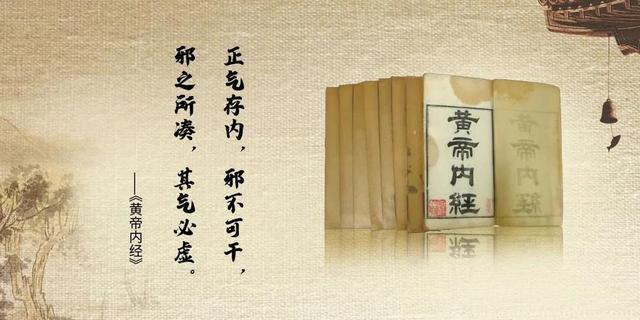 正气存内，邪不可干，
邪之所凑，其气必虚。
——《黄帝内经》
黄帝内經
黄帝内經